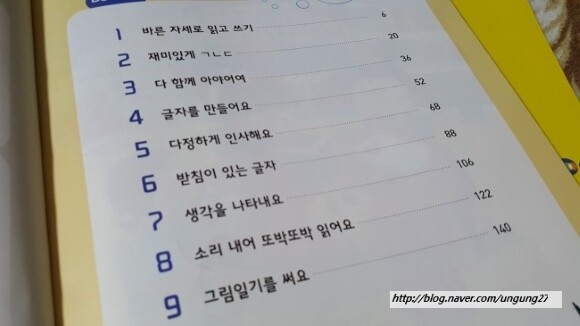 1 바른 자세로 읽고 쓰기 6
2 재미있게 ㄱㄴㄷ 20
3 다 함께 아야어여 36
4 글자를 만들어요 52
5 다정하게 인사해요 68
6 받침이 있는 글자 88
7 생각을 나타내요 106
8 소리 내어 또박또박 읽어요 122
9 그림일기를 써요 140
http://blog.naver.com/ungung27